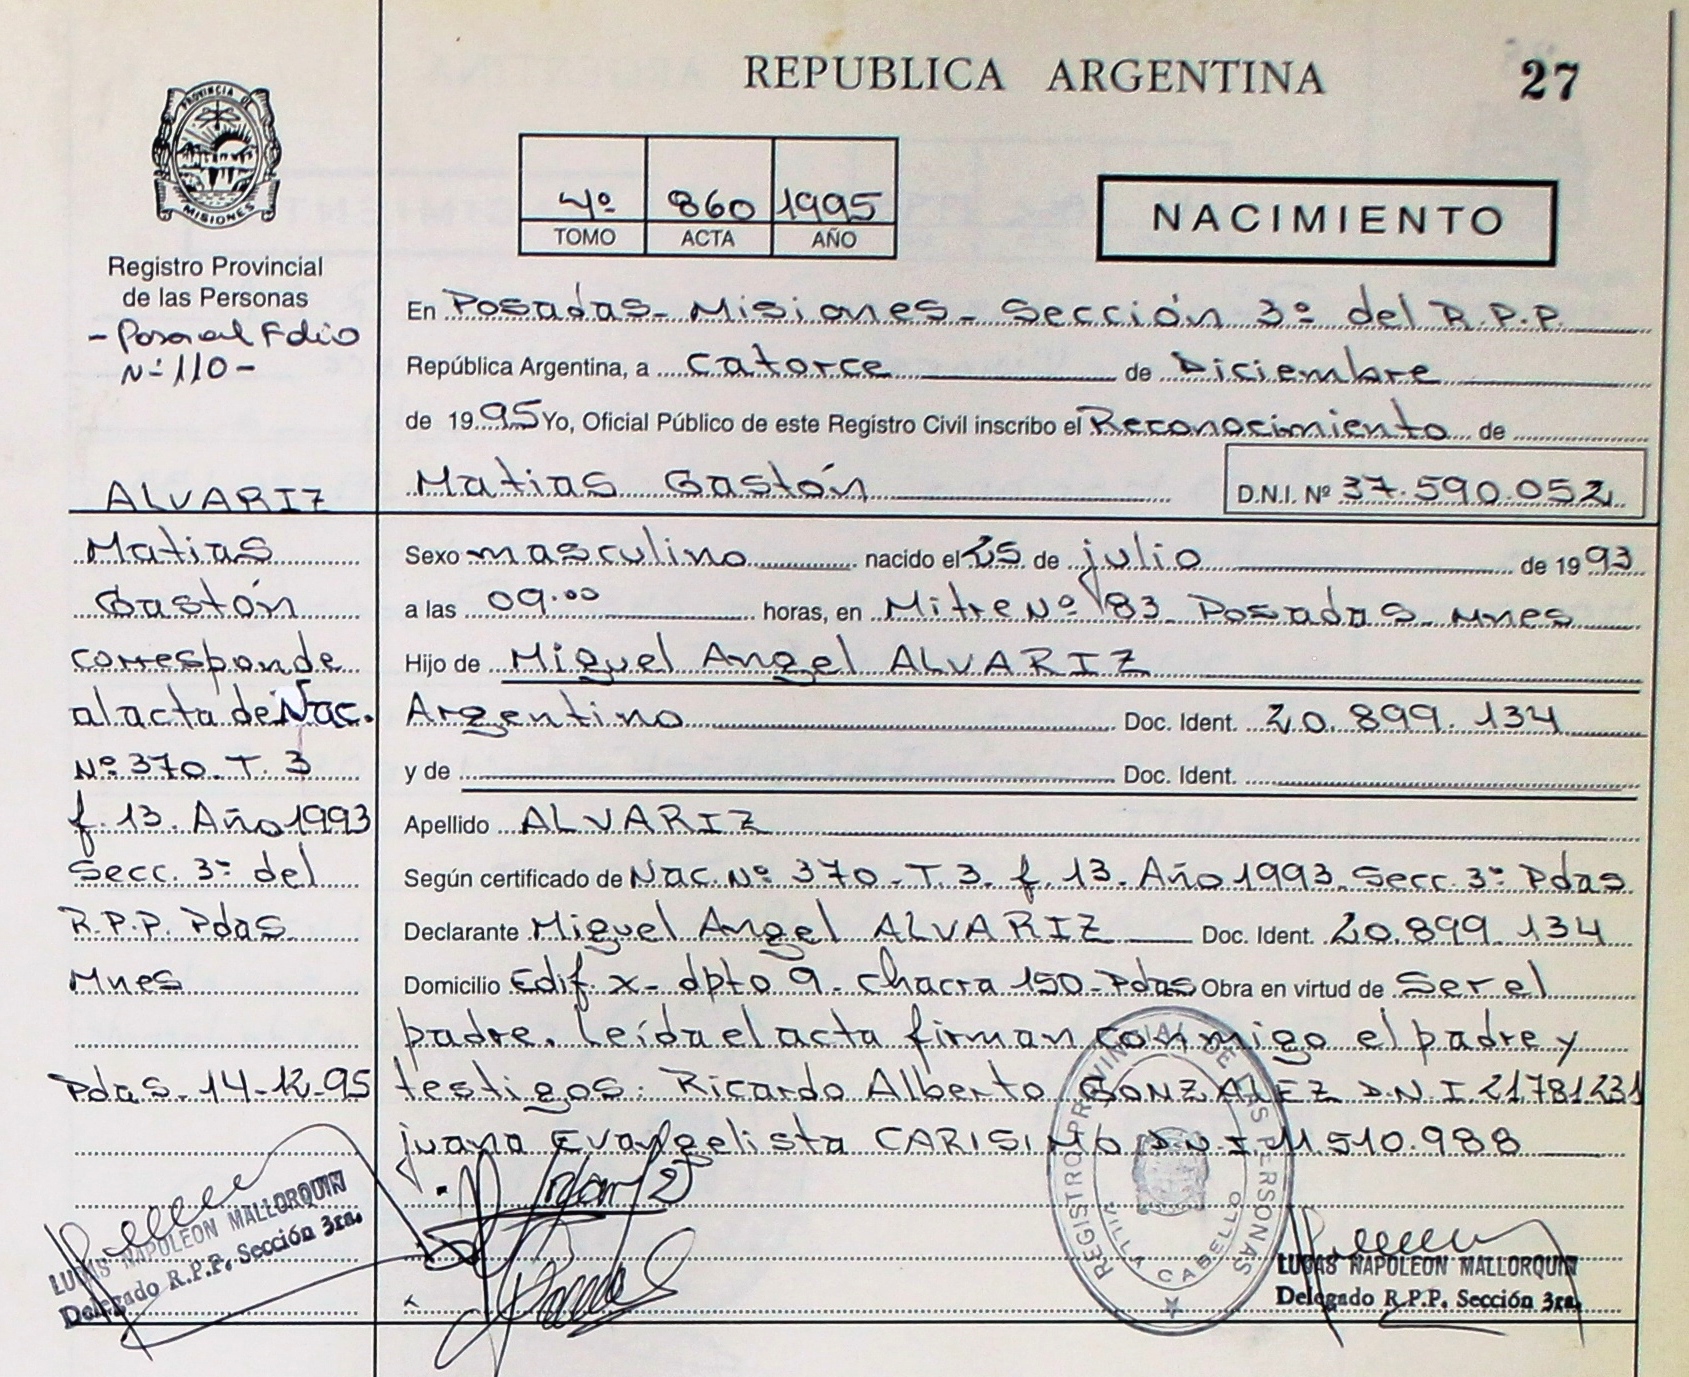 REPUBLICA ARGENTINA
27
PROVINCIA DE
MISIONES
Registro Provincial
de las Personas
- Pasa al Folio
Nº 110 -
4º 860 1995
TOMO ACTA AÑO
NACIMIENTO
En Posadas - Misiones - Sección 3º del R.P.P.
República Argentina, a catorce de Diciembre
de 1995 Yo, Oficial Público de este Registro Civil inscribo el Reconocimiento de
Matias Gastón D.N.I. Nº 37.590.052
Sexo masculino nacido el 25 de julio de 1993
a las 09.00 horas, en Mitre Nº 183 Posadas - Mnes
Hijo de Miguel Angel ALVARIZ
Argentino Doc. Ident. 20.899.134
y de Doc. Ident.
Apellido ALVARIZ
Según certificado de Nac. Nº 370 - T. 3. f. 13. Año 1993. Secc. 3º Pdas
Declarante Miguel Angel ALVARIZ Doc. Ident. 20.899.134
Domicilio Edif. X - dpto 9 - Chacra 150 - Pdas Obra en virtud de Ser el
padre. Leída el acta firman conmigo el padre y
testigos: Ricardo Alberto GONZALEZ D.N.I. 21781231
juana Evangelista CARISIMO D.N.I. 11.510.988
ALVARIZ
Matias
Gastón
corresponde
al acta de Nac.
Nº 370. T. 3
f. 13. Año 1993
Secc. 3º del
R.P.P. Pdas
Mnes
Pdas - 14-12-95
LUCAS NAPOLEON MALLORQUIN
Delegado R.P.P. Sección 3ra.
REGISTRO PROVINCIAL DE LAS PERSONAS
VILLA CABELLO
LUCAS NAPOLEON MALLORQUIN
Delegado R.P.P. Sección 3ra.